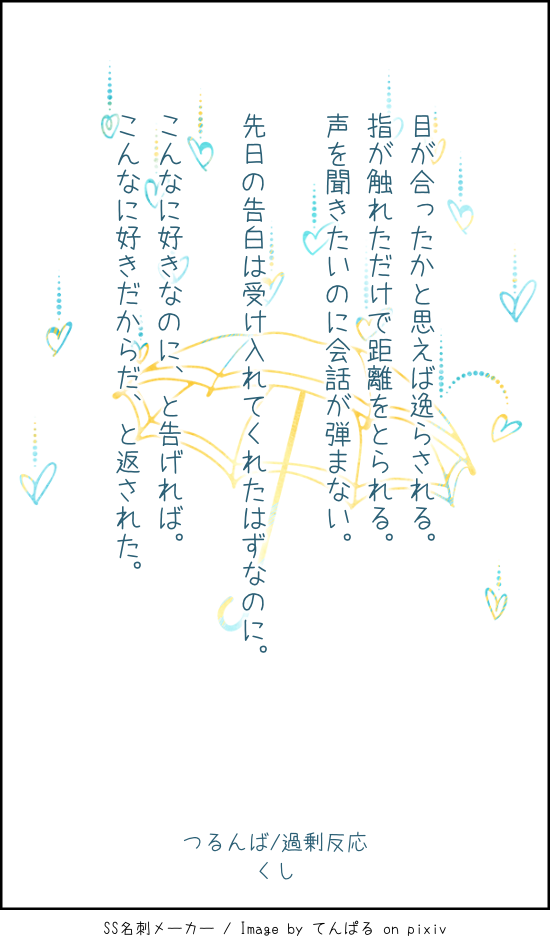 目が合ったかと思えば逸らされる。
指が触れただけで距離をとられる。
声を聞きたいのに会話が弾まない。
先日の告白は受け入れてくれたはずなのに。
こんなに好きなのに、と告げれば。
こんなに好きだからだ、と返された。
つるんば/過剰反応
くし
SS名刺メーカー / Image by てんぱる on pixiv